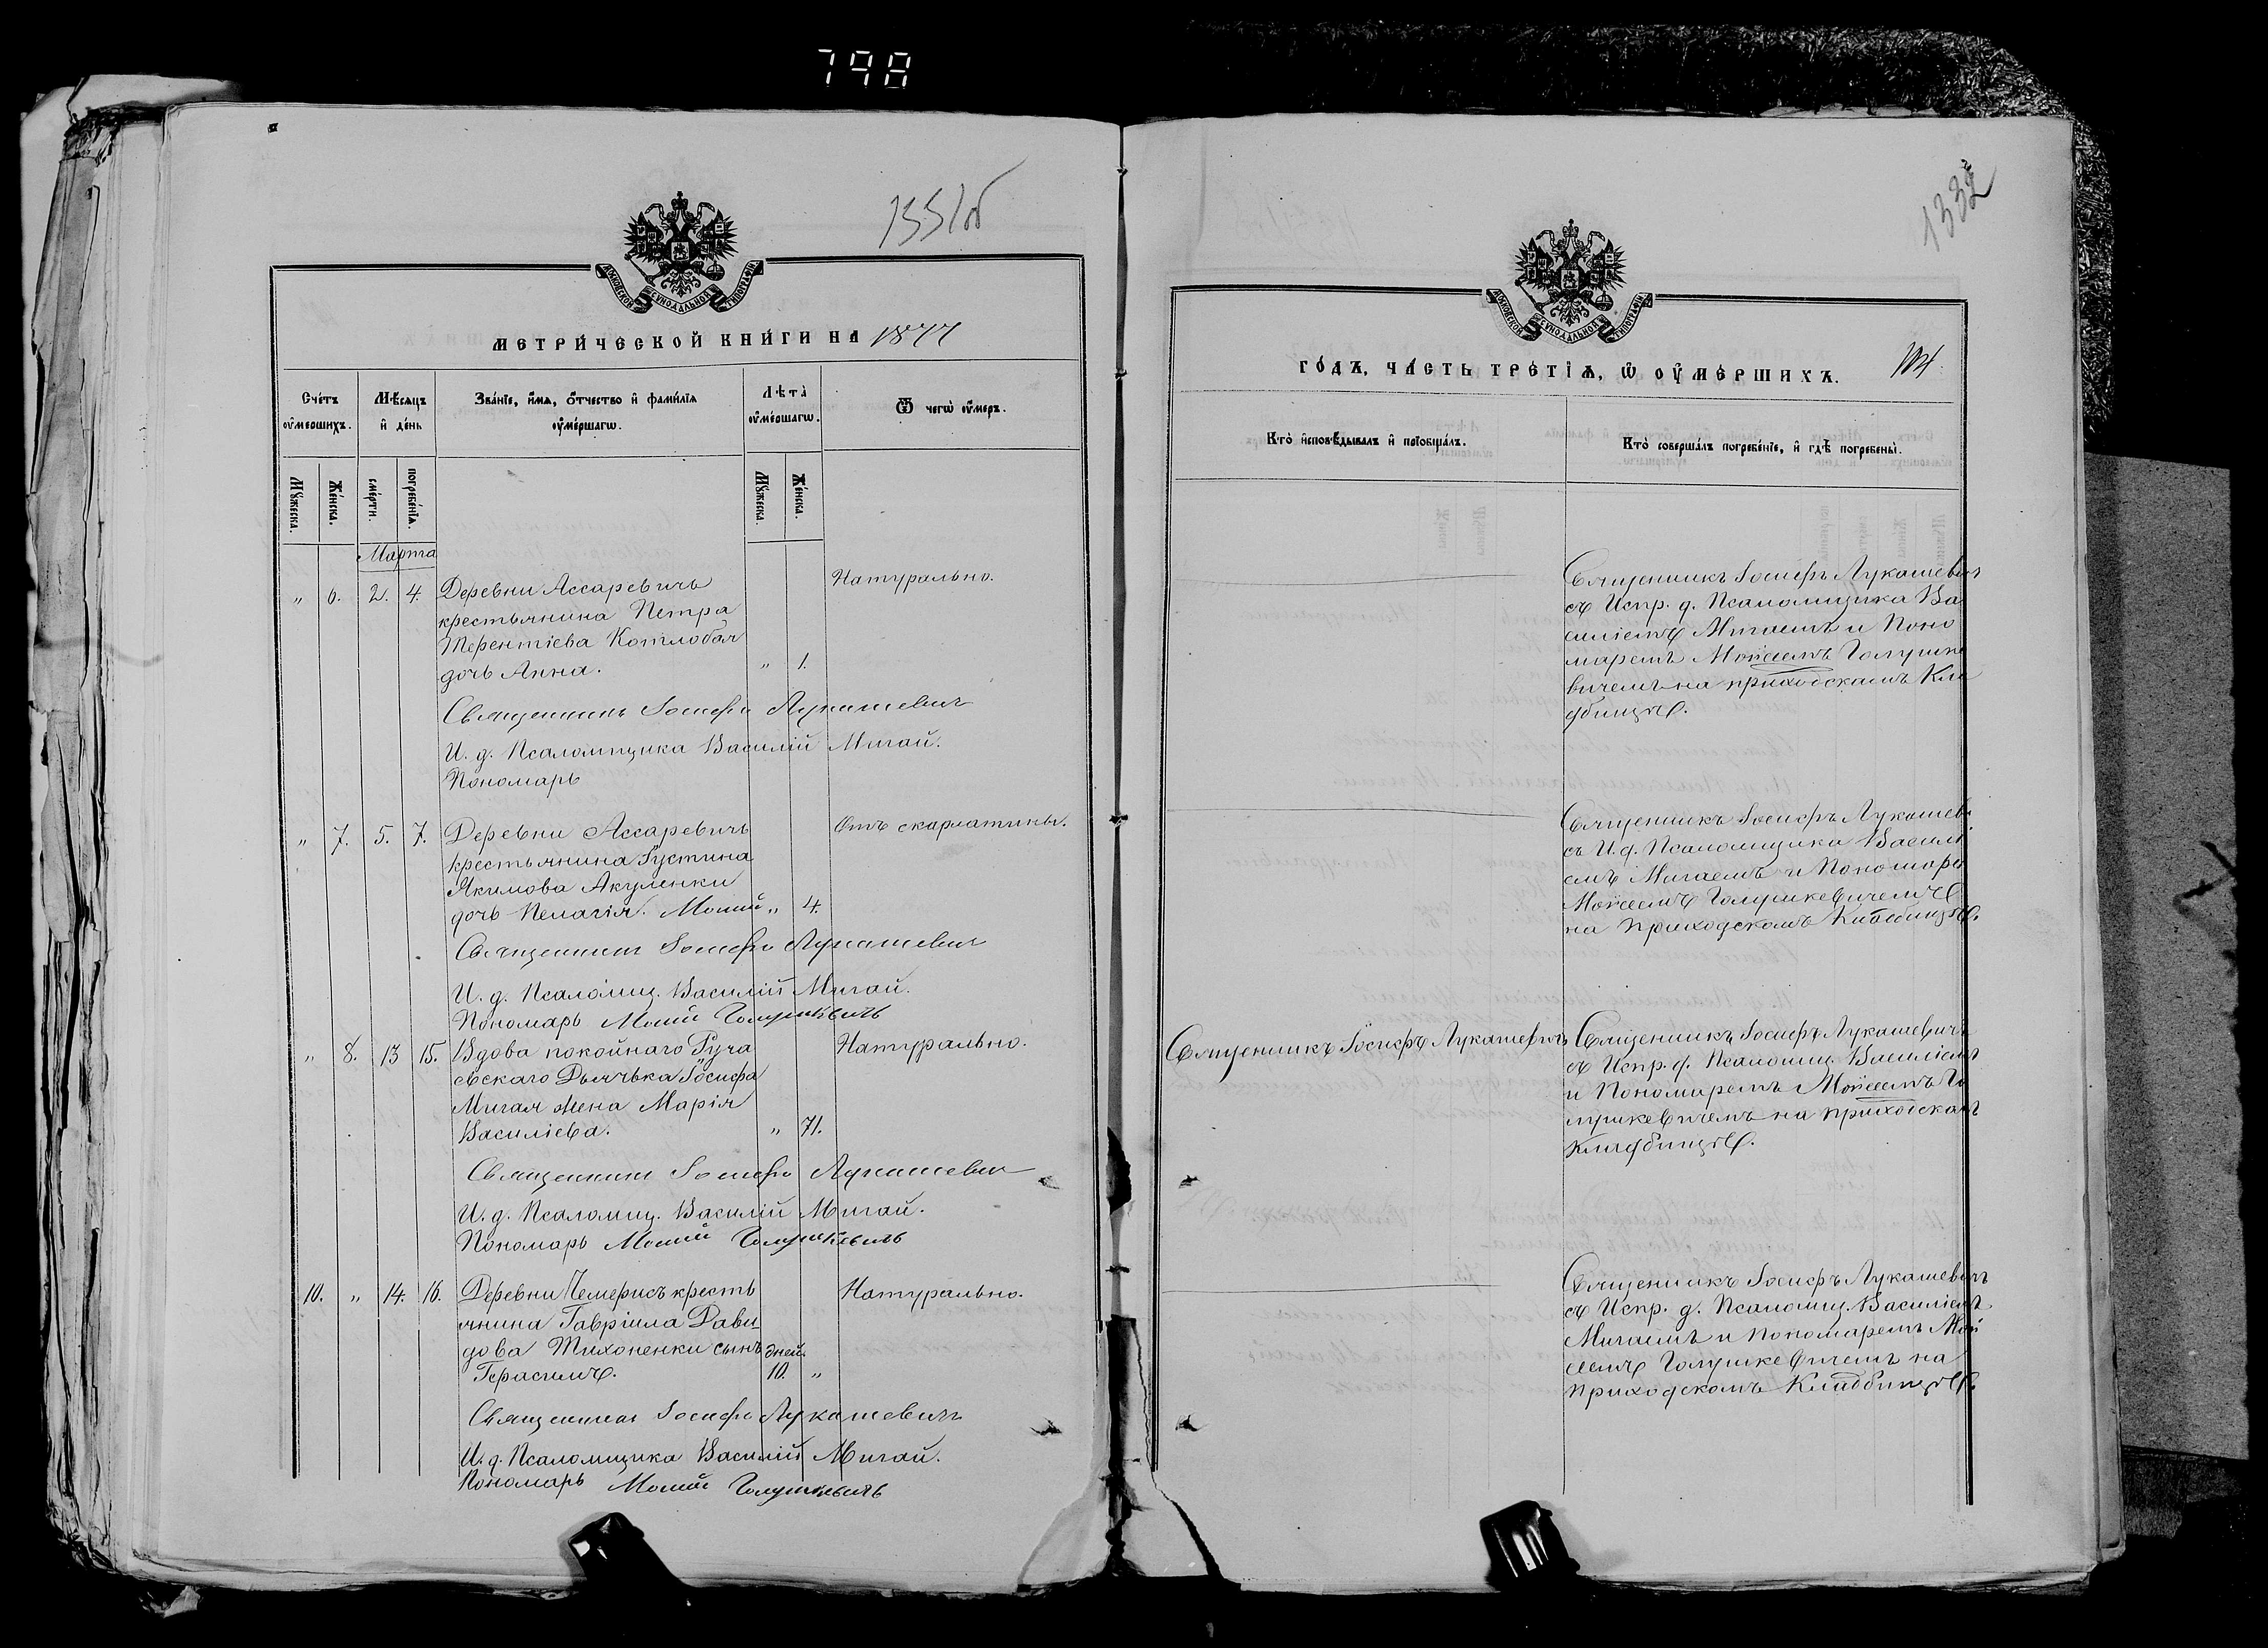 798
1331об
МОСКОВСКОЙ СУНОДАЛЬНОЙ ТИПОГРАФІИ
МЕТРИЧЕСКОЙ КНИГИ НА 1877
Счетъ оумершихъ.
Мѣсяцъ и день
Званіе, имя, отчество и фамилія оумершагѡ.
Лѣта оумершагѡ.
Ѿ чегѡ оумеръ.
Мꙋжеска.
Женска.
смерти.
погребенія.
Мꙋжеска.
Женска.
Марта
" 6. 2. 4. Деревни Ассаревичь
Натурально.
крестьянина Петра
Терентіева Котлобая
дочь Анна. " 1.
Священникъ Іосифъ Лукашевичъ
И. д. Псаломщика Василій Мигай.
Пономарь
" 7. 5. 7. Деревни Ассаревичь
Отъ скарлатины.
крестьянина Густина
Якимова Акуленки
дочь Пелагія. Моисей " 4.
Священникъ Іосифъ Лукашевичъ
И. д. Псаломщ. Василій Мигай.
Пономарь Моисей Голушкевичъ
" 8. 13 15. Вдова покойнаго
Натурально.
евскаго Дьячька Іосифа
Мигая жена Марія
Василіева. " 71.
Священникъ Іосифъ Лукашевич
И. д. Псаломщ. Василій Мигай.
Пономарь Моисей Голушкевичъ
10. " 14. 16. Деревни Чемерисъ кресть
Натурально.
янина Гавріила Дави
дова Тихоненки сынъ дней.
Герасимъ. 10. "
Священникъ Іосифъ Лукашевичъ
И. д. Псаломщика Василій Мигай.
Пономарь Моисей Голушкевичъ
1332
МОСКОВСКОЙ СУНОДАЛЬНОЙ ТИПОГРАФІИ
ГОДЪ, ЧАСТЬ ТРЕТІЯ, Ѡ ОУМЕРШИХЪ.
Кто исповѣдывалъ и пріобщалъ.
Кто совершалъ погребеніе, и гдѣ погребены.
Священникъ Іосифъ Лукашевич
съ Испр. д. Псаломщика Ва
силіемъ Мигаемъ и Поно
маремъ Моисеемъ Голушке
вичемъ на приходскомъ Кла
дбищѣ.
Священникъ Іосифъ Лукашеви
съ И. д. Псаломщика Василі
емъ Мигаемъ и Пономаре
Моисеемъ Голушкевичемъ
на приходскомъ Кладбищѣ.
Священникъ Іосифъ Лукашевичъ
Священникъ Іосифъ Лукашевичъ
съ Испр. д. Псаломщ. Василіемъ
и Пономаремъ Моисеемъ Го
лушкевичемъ на приходскомъ
Кладбищѣ.
Священникъ Іосифъ Лукашевичъ
съ Испр. д. Псаломщ. Василіемъ
Мигаемъ и Пономаремъ Мои
сеемъ Голушкевичемъ на
приходскомъ Кладбищѣ.